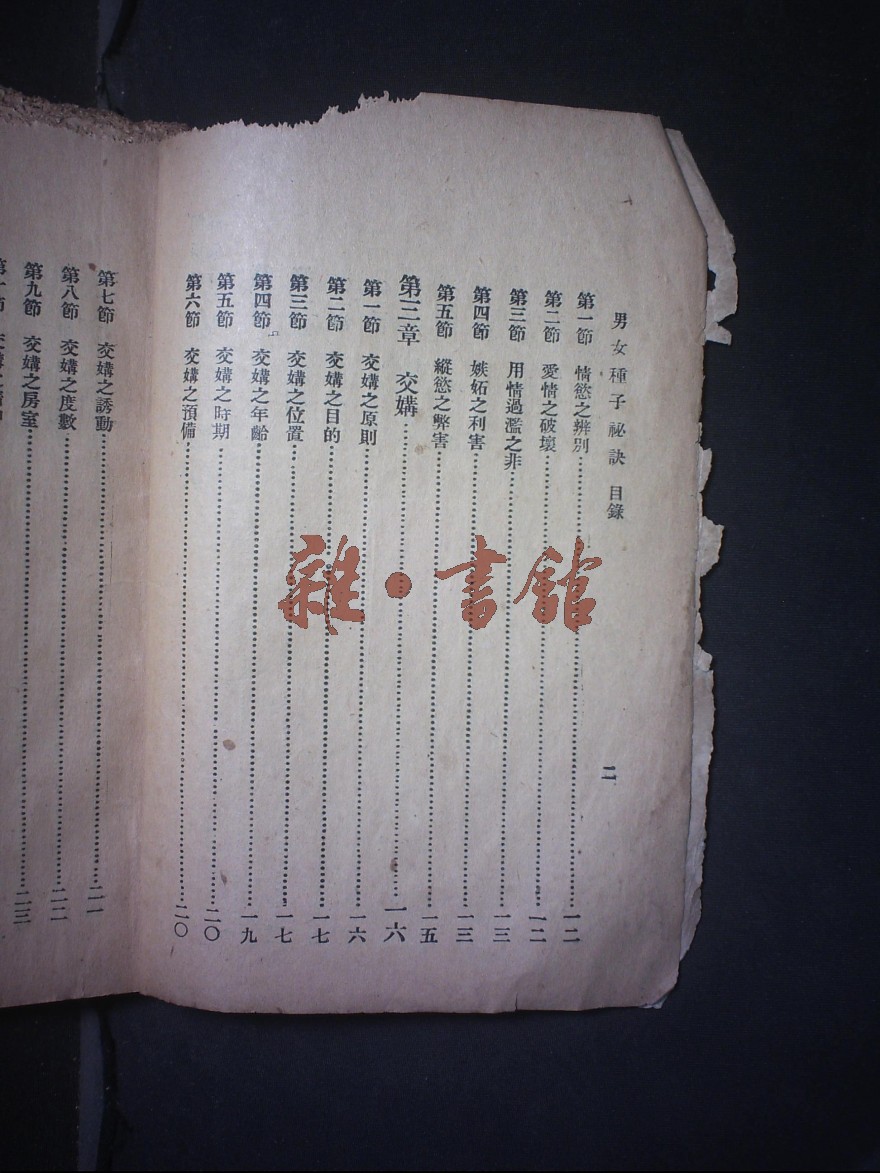 男女種子祕訣 目錄
二
第一節 情慾之辨別 一二
第二節 愛情之破壞 一二
第三節 用情過濫之非 一三
第四節 嫉妬之利害 一三
第五節 縱慾之弊害 一五
第三章 交媾 一六
第一節 交媾之原則 一六
第二節 交媾之目的 一七
第三節 交媾之位置 一七
第四節 交媾之年齡 一九
第五節 交媾之時期 二〇
第六節 交媾之預備 二〇
第七節 交媾之誘動 二一
第八節 交媾之度數 二二
第九節 交媾之房室 二三
雜·書館